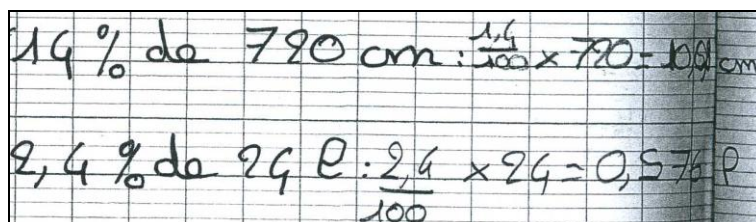 14 % de 720 cm : 1,4/100 × 720 = cm
2,4 % de 24 ℓ : 2,4/100 × 24 = 0,576 ℓ